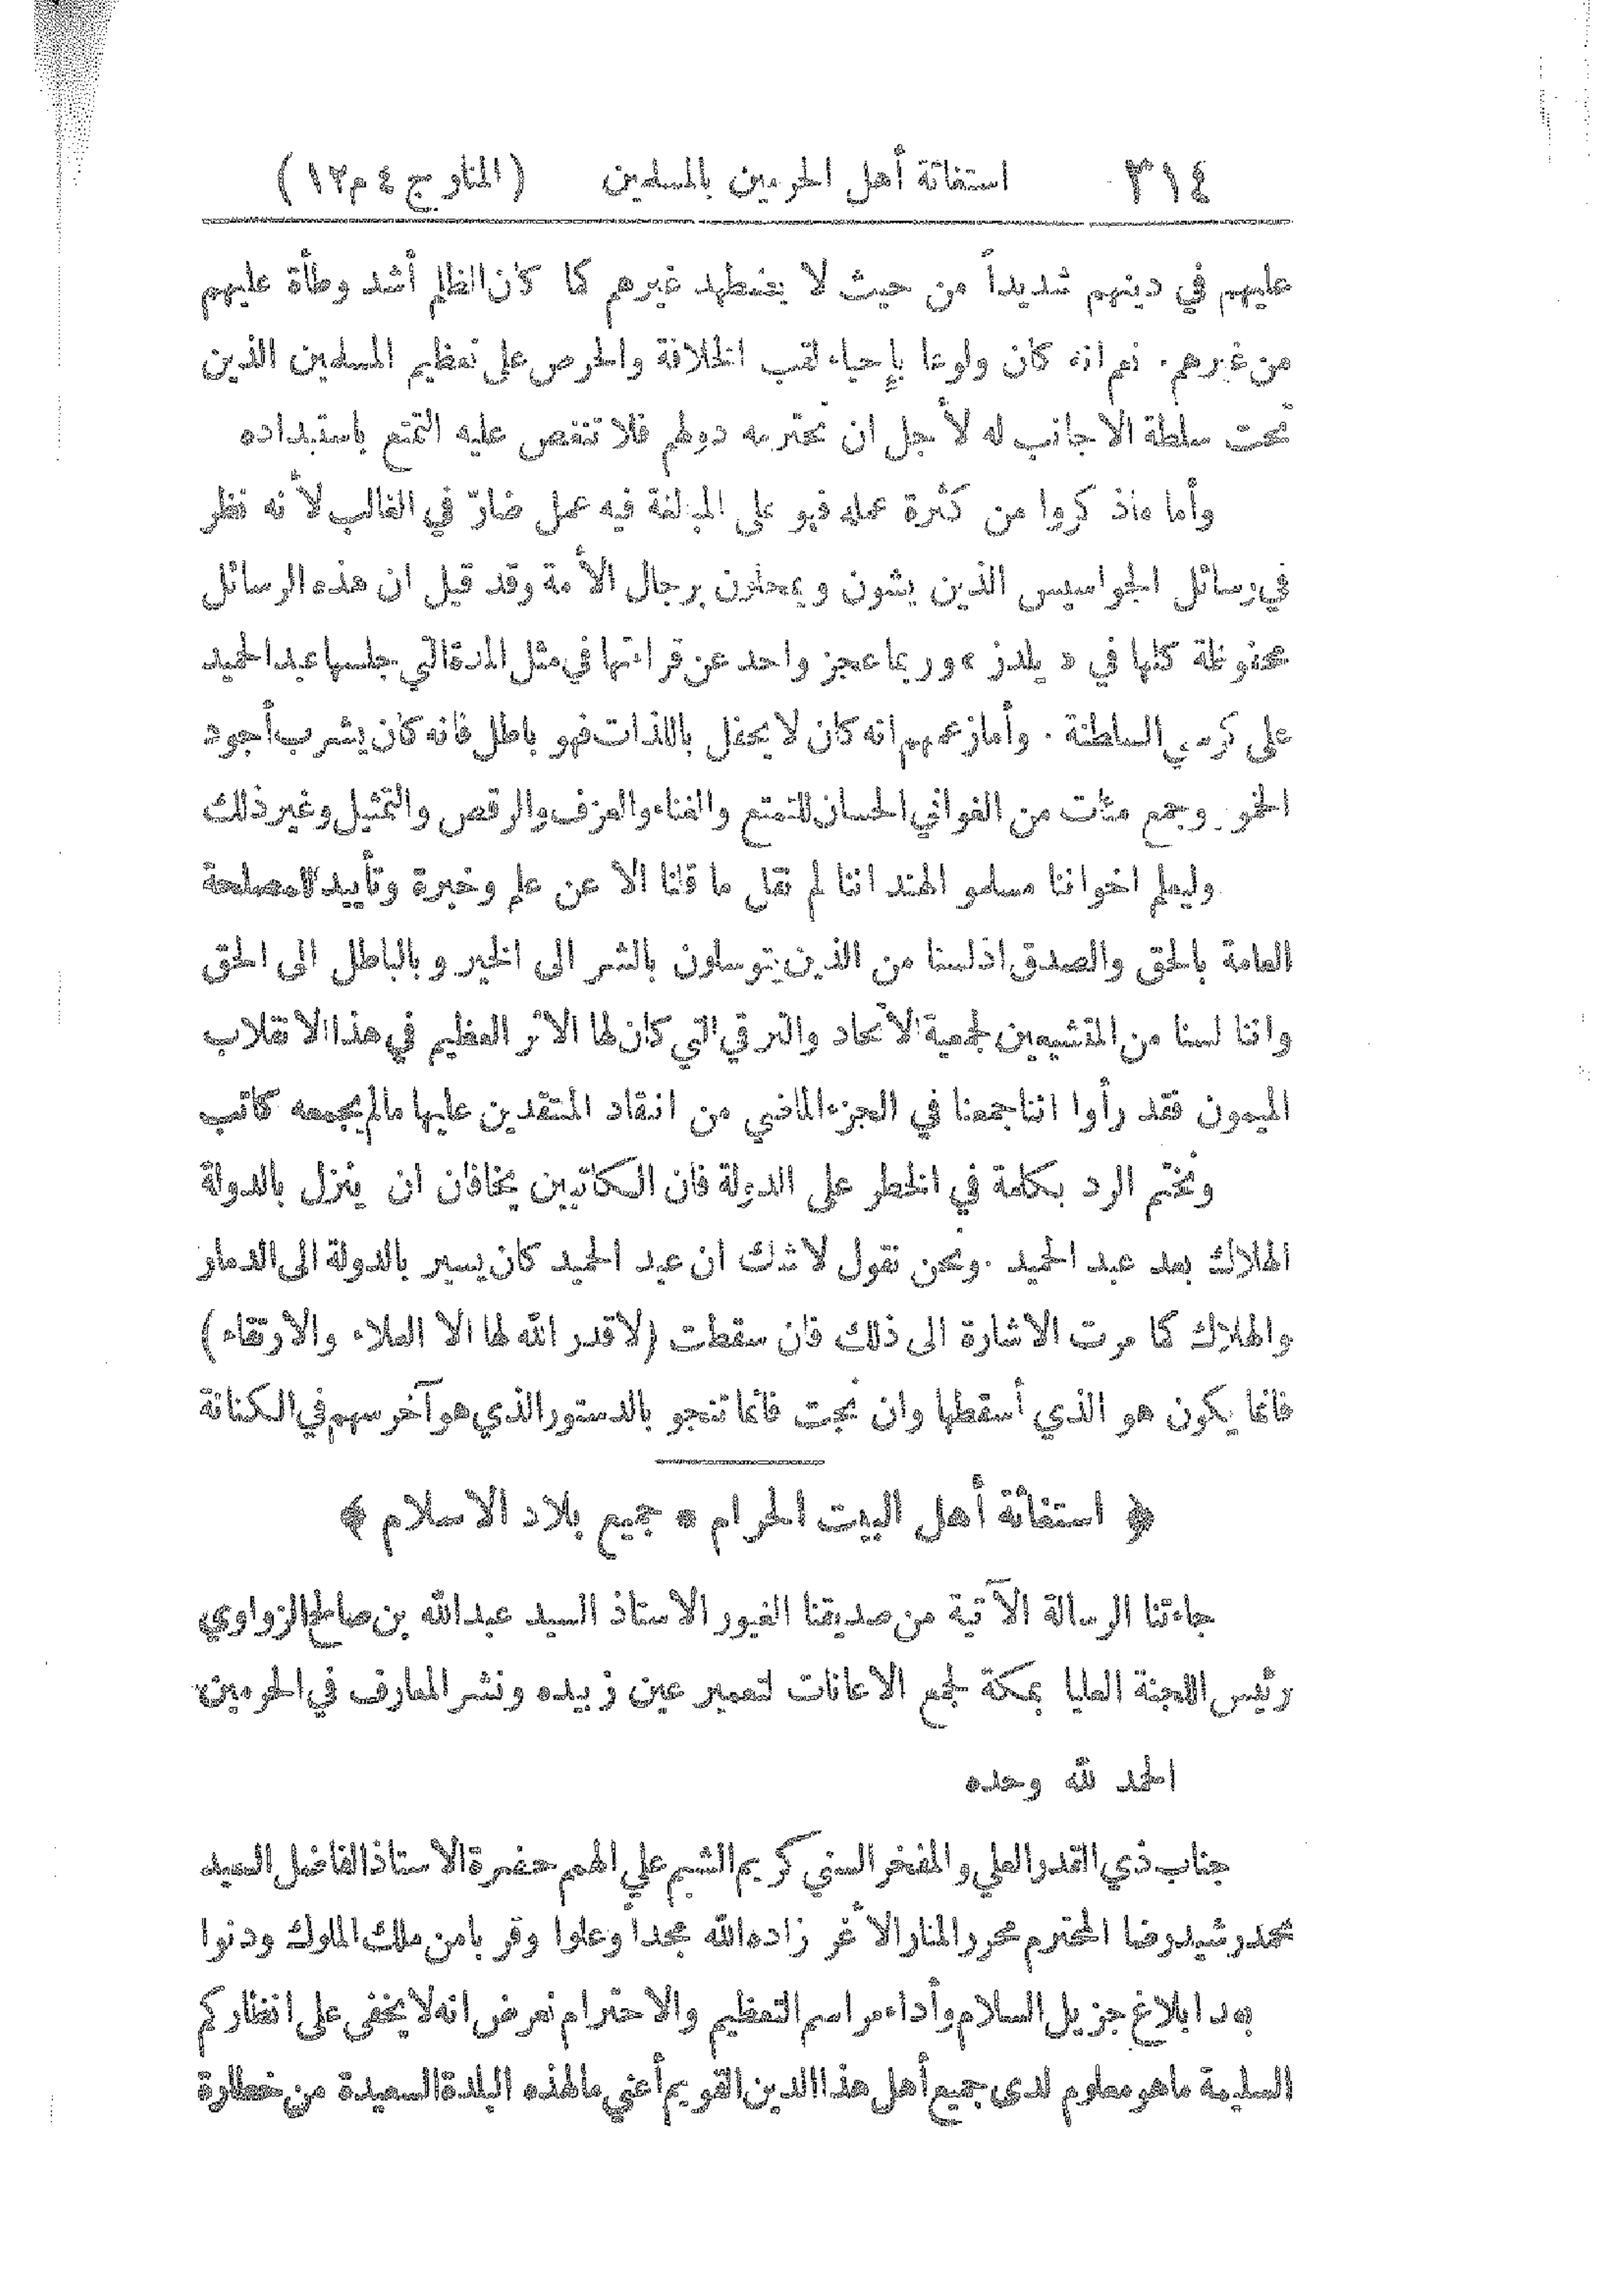 ٣١٤ استغاثة أهل الحرمين بالمسلمين (المنار ج ٤ م ١٢)
عليهم في دينهم شديداً من حيث لا يضطهد غيرهم كما كان الظلم أشد وطأة عليهم
من غيرهم . نعم انه كان ولوعا بإحياء لقب الخلافة والحرص على تعظيم المسلمين الذين
تحت سلطة الاجانب له لأجل ان تحترمه دولهم فلا تنغص عليه التمتع باستبداده
وأما ماذكروا من كثرة عمله فهو على المبالغة فيه عمل ضارّ في الغالب لأنه نظر
في رسائل الجواسيس الذين يشون ويمحلون برجال الأمة وقد قيل ان هذه الرسائل
محفوظة كلها في « يلدز » وربما عجز واحد عن قراءتها في مثل المدة التي جلسها عبد الحميد
على كرسي السلطنة . وأما زعمهم انه كان لا يحفل باللذات فهو باطل فانه كان يشرب أجود
الخمور وجمع مئات من الغواني الحسان للتمتع والغناء والعزف والرقص والتمثيل وغير ذلك
وليعلم اخواننا مسلمو الهند اننا لم نقل ما قلنا الا عن علم وخبرة وتأييد للمصلحة
العامة بالحق والصدق اذ لسنا من الذين يتوسلون بالشر الى الخير وبالباطل الى الحق
واننا لسنا من المتشيعين لجمعية الاتحاد والترقي التي كان لها الاثر العظيم في هذا الانقلاب
الميمون فقد رأوا اننا جمعنا في الجزء الماضي من انتقاد المنتقدين عليها مالم يجمعه كاتب
ونختم الرد بكلمة في الخطر على الدولة فان الكاتبين يخافان ان ينزل بالدولة
الهلاك بعد عبد الحميد . ونحن نقول لا شك ان عبد الحميد كان يسير بالدولة الى الدمار
والهلاك كما مرت الاشارة الى ذلك فان سقطت (لاقدر الله لها الا العلاء والارتقاء)
فانما يكون هو الذي أسقطها وان نجت فانما تنجو بالدستور الذي هو آخر سهم في الكنانة
﴿ استغاثة أهل البيت الحرام * جميع بلاد الاسلام ﴾
جاءتنا الرسالة الآتية من صديقنا الغيور الاستاذ السيد عبدالله بن صالح الزواوي
رئيس اللجنة العليا بمكة لجمع الاعانات لتعمير عين زبيده ونشر المعارف في الحرمين
الحمد لله وحده
جناب ذي القدر العلي والمفخر السني كريم الشيم علي الهمم حضرة الاستاذ الفاضل السيد
محمد رشيد رضا المحترم محرر المنار الأغر زاده الله مجداً وعلوا وقربا من ملك الملوك ودنوا
بعد ابلاغ جزيل السلام وأداء مراسم التعظيم والاحترام نعرض انه لا يخفى على انظاركم
السليمة ماهو معلوم لدى جميع أهل هذا الدين القويم أعني مالهذه البلدة السعيدة من خطارة